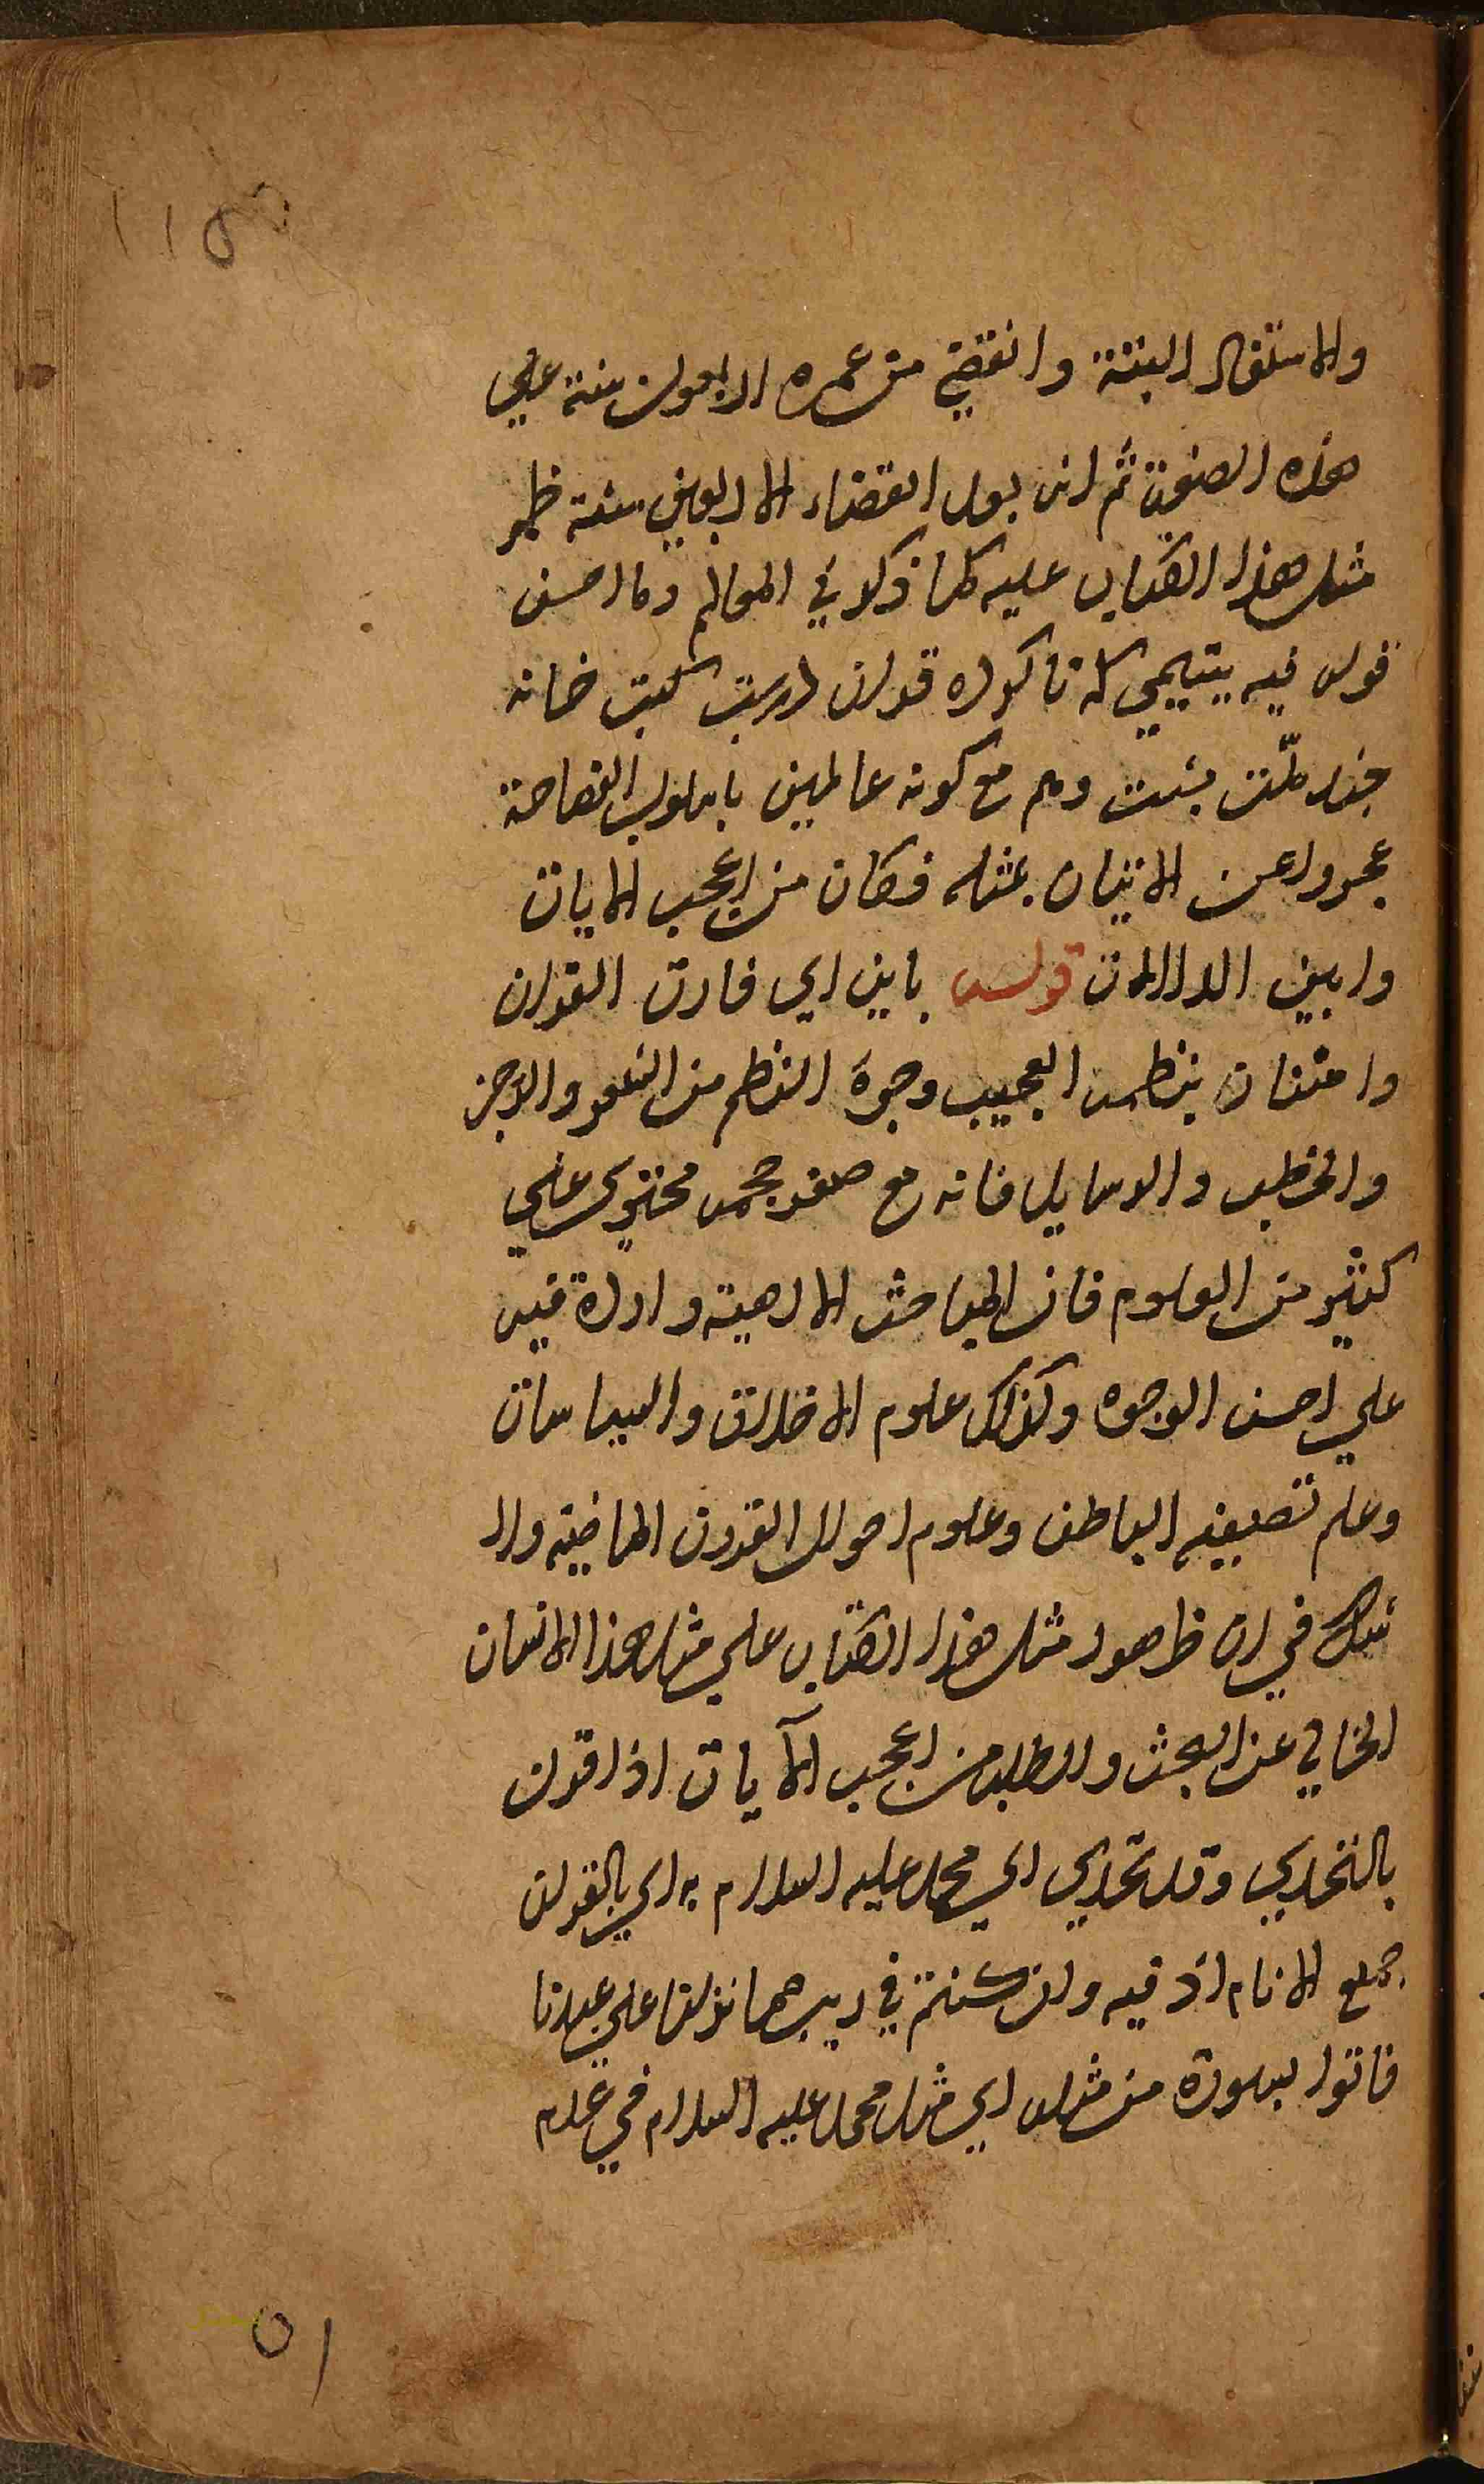 والاستفال البتة وانقضي من عمره اربعون سنة علي
هذه الصفة ثم انه بعد انقضاء الاربعين سنة ظهر
مثل هذا الكتاب عليه كما ذكر في المعالم وما احسن
قول فيه يتيمي كه ناكرده قران درست كتب خانه
چند ملّت بشست وهم مع كونه عالمين باسلوب الفصاحة
عجزوا عن الاتيان بمثله فكان من اعجب الايات
وابين الدلالات قوله باين اي فارق القران
وامتنان بنظمه العجيب وجوه النظم من الشعر والرجز
والخطب والرسايل فانه مع صغر حجمه محتوي علي
كثير من العلوم فان المباحث الالهية واردة فيه
علي احسن الوجوه وكذلك علوم الاخلاق والسياسات
وعلم تصفية الباطن وعلوم احوال القرون الماضية ولا
شك في ان ظهور مثل هذا الكتاب علي مثل هذا الانسان
الخالي عن البحث والطلب من اعجب الآيات اذا قرن
بالتحدي وقد تحدي اي محمد عليه السلام به اي بالقران
جميع الانام اذ فيه وان كنتم في ريب مما نزلنا علي عبدنا
فاتوا بسورة من مثله اي مثل محمد عليه السلام في عدم